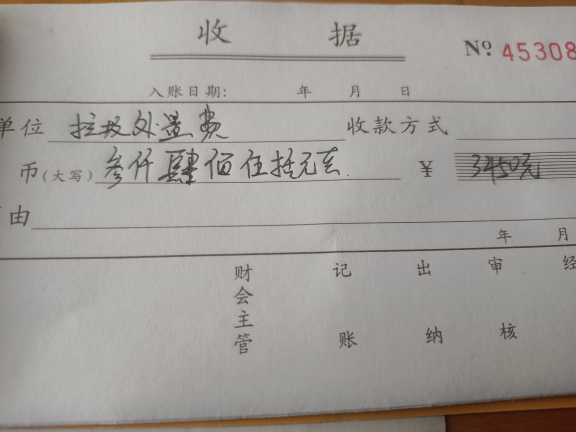 收 据
Nº 45308
入账日期: 年 月 日
单位 垃圾处置费 收款方式
币(大写) 参仟肆佰伍拾元 ¥ 3450元
由
年 月
财会主管 记账 出纳 审核 经